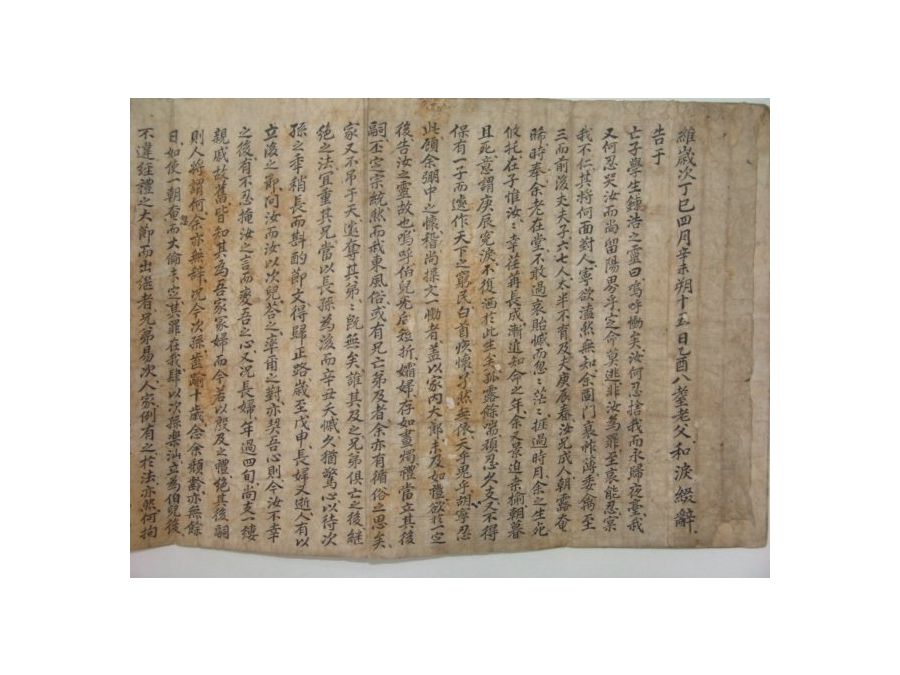 維歲次丁巳四月辛未朔十五日乙酉八耋老父和淚綴辭
告于
亡子學生鍊浩之靈曰嗚呼慟矣汝何忍捨我而永歸夜臺我
又何忍哭汝而尙留陽界乎定命莫逃非汝爲罪至哀能忍寔
我不仁其將何面對人寧欲溘然無知余閫門衰祚薄委禽至
三而前後丈夫子六七人太半不育及夫庚辰春汝兄成人朝露奄
晞時奉余老在堂不敢過哀貽慽而忽〻茫〻捱過時月余之生死
攸托在子惟汝〻幸茁苒長成漸近知命之年余之景迫桑榆朝暮
且死意謂庚辰寃淚不復洒於此生矣孤露餘喘頑忍久支又不得
保有一子而遽作天下之窮民白首疚懷孑然無依天乎鬼乎胡寧忍
此領余弸中之懷稽尙操文一慟者蓋以家內大節未及如禮欲於一定
後告汝之靈故也嗚呼伯兒先后短折孀婦存如晝燭禮當立其後
嗣丕定宗統然而我東風俗或有兄亡弟及者余亦有循俗之思矣
家又不吊于天遽奪其弟〻旣無矣誰其及之兄弟俱亡之後繼
絶之法宜重其兄當以長孫爲後而辛丑夭慽久猶驚心以待次
孫之年稍長而斟酌節文得歸正路歲至戊申長婦又逝人有以
立後之節問汝而汝以次兒答之率爾之對亦契吾心則今汝不幸
之後有不忍掩汝之言而變吾之心又況長婦年過四旬尙支一縷
親戚故舊皆知其爲吾家冢婦而今若以殷及之禮絶其後嗣
則人將謂何余亦無辭況今次孫旣踰十歲念余頹齡亦無餘
日如使一朝奄忽而大倫未定其罪在我肆以次孫樂汕立爲伯兒後
不違經禮之大節而出繼者兄弟易次人家例有之於法亦然何拘